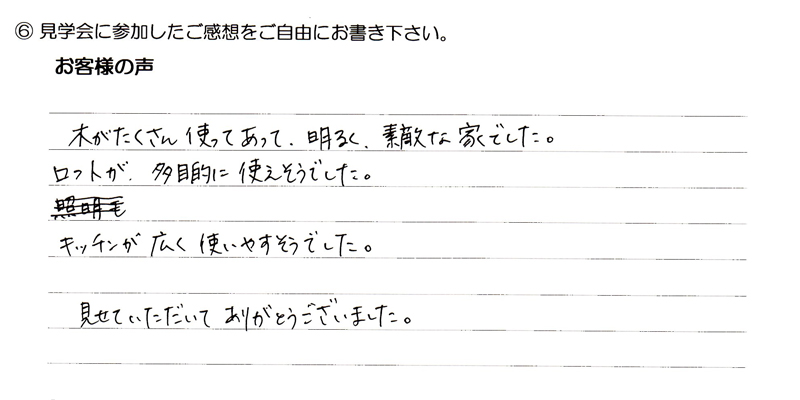 ⑥ 見学会に参加したご感想をご自由にお書き下さい。
お客様の声
木がたくさん使ってあって、明るく、素敵な家でした。
ロットが、多目的に使えそうでした。
照明も
キッチンが広く使いやすそうでした。
見せていただいてありがとうございました。